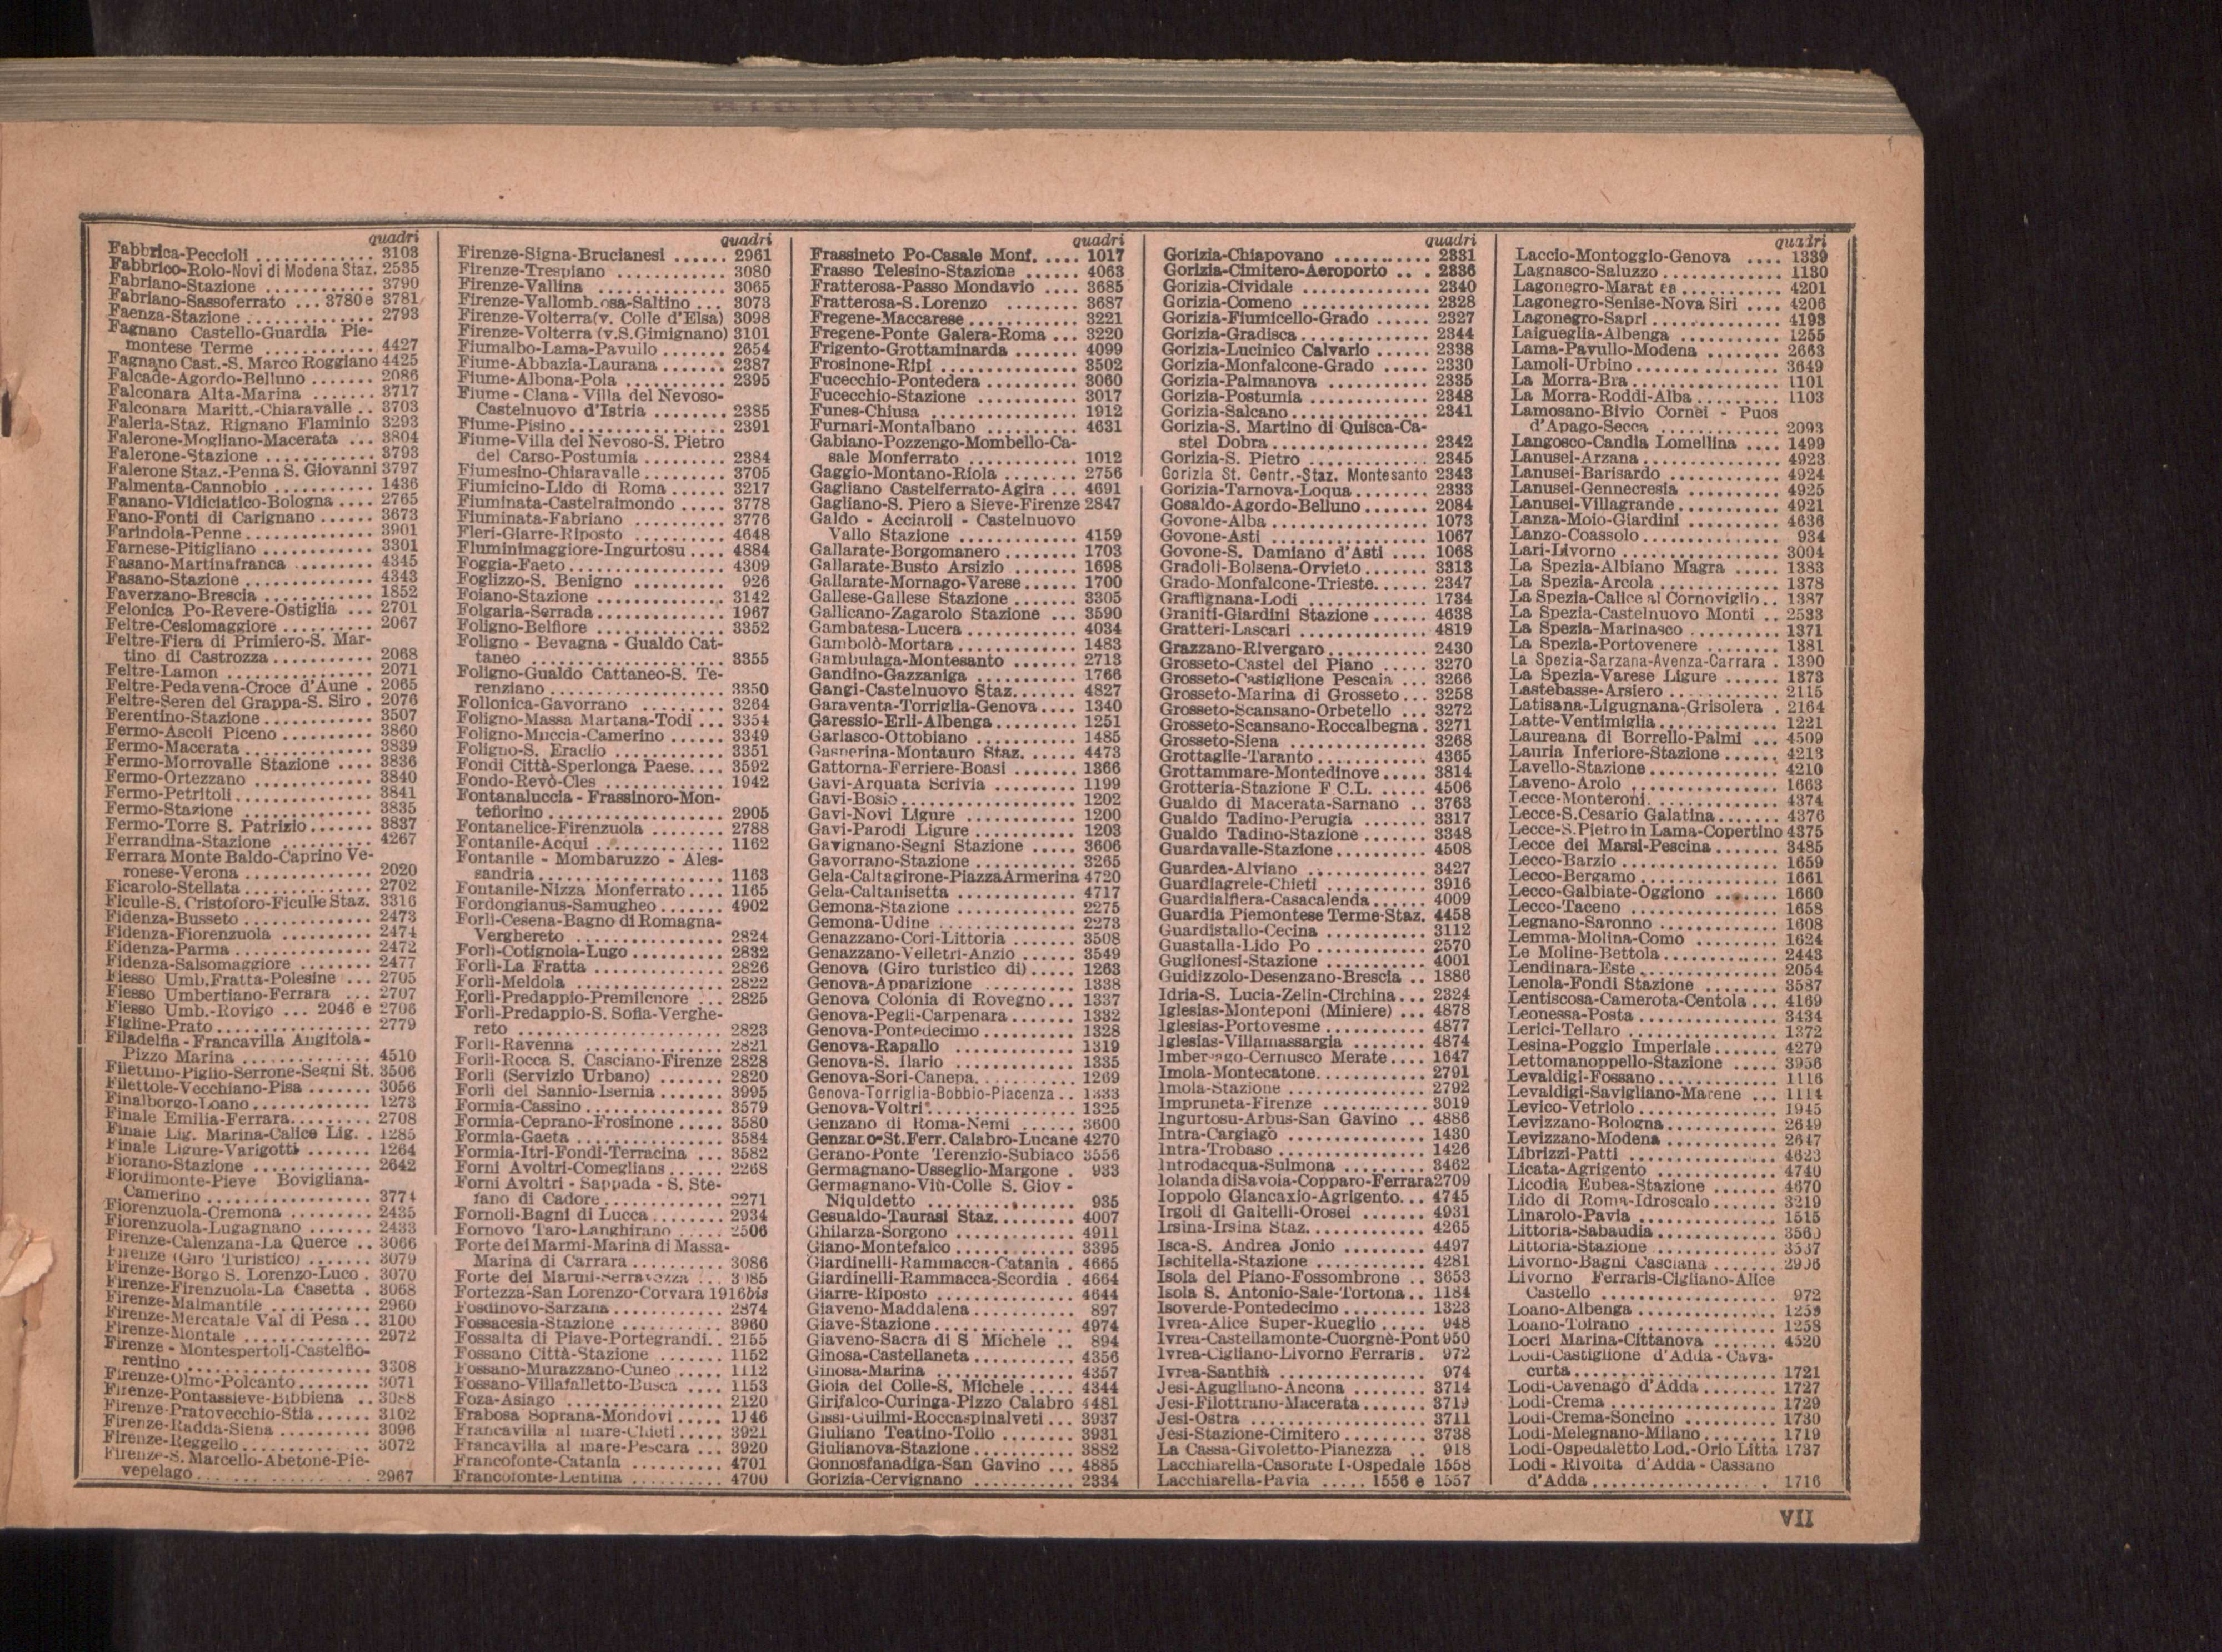 BIBLIOTECA
quadri
Fabbrica-Peccioli ............ 3103
Fabbrico-Rolo-Novi di Modena Staz. 2535
Fabriano-Stazione ............ 3790
Fabriano-Sassoferrato ... 3780 e 3781
Faenza-Stazione ............ 2793
Fagnano Castello-Guardia Pie-
montese Terme ............ 4427
Fagnano Cast.-S. Marco Roggiano 4425
Falcade-Agordo-Belluno ....... 2086
Falconara Alta-Marina ....... 3717
Falconara Maritt.-Chiaravalle .. 3703
Faleria-Staz. Rignano Flaminio 3293
Falerone-Mogliano-Macerata ... 3804
Falerone-Stazione ............ 3793
Falerone Staz.-Penna S. Giovanni 3797
Falmenta-Cannobio ........... 1436
Fanano-Vidiciatico-Bologna .... 2765
Fano-Fonti di Carignano ...... 3673
Farindola-Penne .............. 3901
Farnese-Pitigliano ............ 3301
Fasano-Martinafranca ......... 4345
Fasano-Stazione .............. 4343
Faverzano-Brescia ............ 1852
Felonica Po-Revere-Ostiglia ... 2701
Feltre-Cesiomaggiore .......... 2067
Feltre-Fiera di Primiero-S. Mar-
tino di Castrozza ........... 2068
Feltre-Lamon ................ 2071
Feltre-Pedavena-Croce d'Aune . 2065
Feltre-Seren del Grappa-S. Siro . 2076
Ferentino-Stazione ............ 3507
Fermo-Ascoli Piceno .......... 3860
Fermo-Macerata .............. 3839
Fermo-Morrovalle Stazione .... 3836
Fermo-Ortezzano ............. 3840
Fermo-Petritoli ............... 3841
Fermo-Stazione .............. 3835
Fermo-Torre S. Patrizio ....... 3837
Ferrandina-Stazione .......... 4267
Ferrara Monte Baldo-Caprino Ve-
ronese-Verona .............. 2020
Ficarolo-Stellata .............. 2702
Ficulle-S. Cristoforo-Ficulle Staz. 3316
Fidenza-Busseto .............. 2473
Fidenza-Fiorenzuola .......... 2474
Fidenza-Parma ............... 2472
Fidenza-Salsomaggiore ........ 2477
Fiesso Umb.Fratta-Polesine ... 2705
Fiesso Umbertiano-Ferrara ... 2707
Fiesso Umb.-Rovigo ... 2046 e 2706
Figline-Prato ................. 2779
Filadelfia - Francavilla Angitola -
Pizzo Marina .............. 4510
Filettino-Piglio-Serrone-Segni St. 3506
Filettole-Vecchiano-Pisa ....... 3056
Finalborgo-Loano ............. 1273
Finale Emilia-Ferrara ......... 2708
Finale Lig. Marina-Calice Lig. . 1285
Finale Ligure-Varigotti ....... 1264
Fiorano-Stazione ............. 2642
Fiordimonte-Pieve Bovigliana-
Camerino ................. 3774
Fiorenzuola-Cremona ......... 2435
Fiorenzuola-Lugagnano ....... 2433
Firenze-Calenzana-La Querce .. 3066
Firenze (Giro Turistico) ....... 3079
Firenze-Borgo S. Lorenzo-Luco . 3070
Firenze-Firenzuola-La Casetta . 3068
Firenze-Malmantile ........... 2960
Firenze-Mercatale Val di Pesa .. 3100
Firenze-Montale .............. 2972
Firenze - Montespertoli-Castelfio-
rentino .................... 3308
Firenze-Olmo-Polcanto ........ 3071
Firenze-Pontassieve-Bibbiena .. 3088
Firenze-Pratovecchio-Stia ...... 3102
Firenze-Radda-Siena .......... 3096
Firenze-Reggello .............. 3072
Firenze-S. Marcello-Abetone-Pie-
vepelago ................... 2967
quadri
Firenze-Signa-Brucianesi ...... 2961
Firenze-Trespiano ............ 3080
Firenze-Vallina .............. 3065
Firenze-Vallombrosa-Saltino ... 3073
Firenze-Volterra(v. Colle d'Elsa) 3098
Firenze-Volterra (v.S.Gimignano) 3101
Fiumalbo-Lama-Pavullo ....... 2654
Fiume-Abbazia-Laurana ....... 2387
Fiume-Albona-Pola ........... 2395
Fiume - Clana - Villa del Nevoso-
Castelnuovo d'Istria ........ 2385
Fiume-Pisino ................. 2391
Fiume-Villa del Nevoso-S. Pietro
del Carso-Postumia ......... 2384
Fiumesino-Chiaravalle ........ 3705
Fiumicino-Lido di Roma ...... 3217
Fiuminata-Castelraimondo ..... 3778
Fiuminata-Fabriano .......... 3776
Fleri-Giarre-Riposto .......... 4648
Fluminimaggiore-Ingurtosu .... 4884
Foggia-Faeto ................. 4309
Foglizzo-S. Benigno .......... 926
Foiano-Stazione .............. 3142
Folgaria-Serrada .............. 1967
Foligno-Belfiore .............. 3352
Foligno - Bevagna - Gualdo Cat-
taneo ..................... 3355
Foligno-Gualdo Cattaneo-S. Te-
renziano ................... 3350
Follonica-Gavorrano .......... 3264
Foligno-Massa Martana-Todi ... 3354
Foligno-Muccia-Camerino ...... 3349
Foligno-S. Eraclio ............ 3351
Fondi Città-Sperlonga Paese .... 3592
Fondo-Revò-Cles ............. 1942
Fontanaluccia - Frassinoro-Mon-
tefiorino ................... 2905
Fontanelice-Firenzuola ........ 2788
Fontanile-Acqui .............. 1162
Fontanile - Mombaruzzo - Ales-
sandria .................... 1163
Fontanile-Nizza Monferrato .... 1165
Fordongianus-Samugheo ....... 4902
Forlì-Cesena-Bagno di Romagna-
Verghereto ................ 2824
Forlì-Cotignola-Lugo .......... 2832
Forlì-La Fratta ............... 2826
Forlì-Meldola ................ 2822
Forlì-Predappio-Premilcuore ... 2825
Forlì-Predappio-S. Sofia-Verghe-
reto ....................... 2823
Forlì-Ravenna ................ 2821
Forlì-Rocca S. Casciano-Firenze 2828
Forlì (Servizio Urbano) ....... 2820
Forlì del Sannio-Isernia ....... 3995
Formia-Cassino ............... 3579
Formia-Ceprano-Frosinone .... 3580
Formia-Gaeta ................ 3584
Formia-Itri-Fondi-Terracina ... 3582
Forni Avoltri-Comeglians ...... 2268
Forni Avoltri - Sappada - S. Ste-
fano di Cadore ............. 2271
Fornoli-Bagni di Lucca ........ 2934
Fornovo Taro-Langhirano ..... 2506
Forte dei Marmi-Marina di Massa-
Marina di Carrara .......... 3086
Forte dei Marmi-Serravezza ... 3085
Fortezza-San Lorenzo-Corvara 1916bis
Fosdinovo-Sarzana ............ 2874
Fossacesia-Stazione ........... 3960
Fossalta di Piave-Portegrandi .. 2155
Fossano Città-Stazione ....... 1152
Fossano-Murazzano-Cuneo .... 1112
Fossano-Villafalletto-Busca .... 1153
Foza-Asiago .................. 2120
Frabosa Soprana-Mondovì ..... 1146
Francavilla al mare-Chieti ..... 3921
Francavilla al mare-Pescara ... 3920
Francofonte-Catania .......... 4701
Francofonte-Lentina .......... 4700
quadri
Frassineto Po-Casale Monf. .... 1017
Frasso Telesino-Stazione ...... 4063
Fratterosa-Passo Mondavio .... 3685
Fratterosa-S. Lorenzo ........ 3687
Fregene-Maccarese ............ 3221
Fregene-Ponte Galera-Roma ... 3220
Frigento-Grottaminarda ....... 4099
Frosinone-Ripi ............... 3502
Fucecchio-Pontedera .......... 3060
Fucecchio-Stazione ........... 3017
Funes-Chiusa ................ 1912
Furnari-Montalbano .......... 4631
Gabiano-Pozzengo-Mombello-Ca-
sale Monferrato ............ 1012
Gaggio-Montano-Riola ........ 2756
Gagliano Castelferrato-Agira ... 4691
Gagliano-S. Piero a Sieve-Firenze 2847
Galdo - Acciaroli - Castelnuovo
Vallo Stazione ............. 4159
Gallarate-Borgomanero ........ 1703
Gallarate-Busto Arsizio ....... 1698
Gallarate-Mornago-Varese ...... 1700
Gallese-Gallese Stazione ....... 3305
Gallicano-Zagarolo Stazione ... 3590
Gambatesa-Lucera ............ 4034
Gambolò-Mortara ............. 1483
Gambulaga-Montesanto ....... 2713
Gandino-Gazzaniga ........... 1766
Gangi-Castelnuovo Staz. ...... 4827
Garaventa-Torriglia-Genova .... 1340
Garessio-Erli-Albenga ......... 1251
Garlasco-Ottobiano ........... 1485
Gasperina-Montauro Staz. ..... 4473
Gattorna-Ferriere-Boasi ....... 1366
Gavi-Arquata Scrivia ......... 1199
Gavi-Bosio ................... 1202
Gavi-Novi Ligure ............ 1200
Gavi-Parodi Ligure ........... 1203
Gavignano-Segni Stazione ..... 3606
Gavorrano-Stazione ........... 3265
Gela-Caltagirone-PiazzaArmerina 4720
Gela-Caltanisetta ............. 4717
Gemona-Stazione ............. 2275
Gemona-Udine ............... 2273
Genazzano-Cori-Littoria ....... 3508
Genazzano-Velletri-Anzio ...... 3549
Genova (Giro turistico di) ..... 1263
Genova-Apparizione .......... 1338
Genova Colonia di Rovegno ... 1337
Genova-Pegli-Carpenara ....... 1332
Genova-Pontedecimo .......... 1328
Genova-Rapallo .............. 1319
Genova-S. Ilario .............. 1335
Genova-Sori-Canepa .......... 1269
Genova-Torriglia-Bobbio-Piacenza .. 1333
Genova-Voltri ................ 1325
Genzano di Roma-Nemi ...... 3600
Genzano-St.Ferr. Calabro-Lucane 4270
Gerano-Ponte Terenzio-Subiaco 3556
Germagnano-Usseglio-Margone . 933
Germagnano-Viù-Colle S. Giov -
Niquidetto ................ 935
Gesualdo-Taurasi Staz. ........ 4007
Ghilarza-Sorgono ............. 4911
Giano-Montefalco ............. 3395
Giardinelli-Rammacca-Catania . 4665
Giardinelli-Rammacca-Scordia . 4664
Giarre-Riposto ............... 4644
Giaveno-Maddalena ........... 897
Giave-Stazione ................ 4974
Giaveno-Sacra di S Michele .. 894
Ginosa-Castellaneta ........... 4356
Ginosa-Marina ............... 4357
Gioia del Colle-S. Michele ..... 4344
Girifalco-Curinga-Pizzo Calabro 4481
Gissi-Guilmi-Roccaspinalveti ... 3937
Giuliano Teatino-Tollo ........ 3931
Giulianova-Stazione ........... 3882
Gonnosfanadiga-San Gavino ... 4885
Gorizia-Cervignano ........... 2334
quadri
Gorizia-Chiapovano ........... 2331
Gorizia-Cimitero-Aeroporto .. . 2336
Gorizia-Cividale .............. 2340
Gorizia-Comeno .............. 2328
Gorizia-Fiumicello-Grado ...... 2327
Gorizia-Gradisca .............. 2344
Gorizia-Lucinico Calvario ...... 2338
Gorizia-Monfalcone-Grado ..... 2330
Gorizia-Palmanova ........... 2335
Gorizia-Postumia ............. 2348
Gorizia-Salcano ............... 2341
Gorizia-S. Martino di Quisca-Ca-
stel Dobra ................. 2342
Gorizia-S. Pietro ............. 2345
Gorizia St. Centr.-Staz. Montesanto 2343
Gorizia-Tarnova-Loqua ........ 2333
Gosaldo-Agordo-Belluno ....... 2084
Govone-Alba ................. 1073
Govone-Asti ................. 1067
Govone-S. Damiano d'Asti .... 1068
Gradoli-Bolsena-Orvieto ....... 3313
Grado-Monfalcone-Trieste ...... 2347
Graffignana-Lodi ............. 1734
Graniti-Giardini Stazione ...... 4638
Gratteri-Lascari .............. 4819
Grazzano-Rivergaro ........... 2430
Grosseto-Castel del Piano ..... 3270
Grosseto-Castiglione Pescaia ... 3266
Grosseto-Marina di Grosseto ... 3258
Grosseto-Scansano-Orbetello ... 3272
Grosseto-Scansano-Roccalbegna . 3271
Grosseto-Siena ............... 3268
Grottaglie-Taranto ............ 4365
Grottammare-Montedinove ..... 3814
Grotteria-Stazione F C.L. ..... 4506
Gualdo di Macerata-Sarnano .. 3763
Gualdo Tadino-Perugia ....... 3317
Gualdo Tadino-Stazione ....... 3348
Guardavalle-Stazione .......... 4508
Guardea-Alviano ............. 3427
Guardiagrele-Chieti ........... 3916
Guardialfiera-Casacalenda ...... 4009
Guardia Piemontese Terme-Staz. 4458
Guardistallo-Cecina ........... 3112
Guastalla-Lido Po ............ 2570
Guglionesi-Stazione ........... 4001
Guidizzolo-Desenzano-Brescia .. 1886
Idria-S. Lucia-Zelin-Circhina ... 2324
Iglesias-Monteponi (Miniere) ... 4878
Iglesias-Portovesme ........... 4877
Iglesias-Villamassargia ........ 4874
Imbersago-Cernusco Merate .... 1647
Imola-Montecatone ............ 2791
Imola-Stazione ............... 2792
Impruneta-Firenze ........... 3019
Ingurtosu-Arbus-San Gavino .. 4886
Intra-Cargiago ............... 1430
Intra-Trobaso ................ 1426
Introdacqua-Sulmona ......... 3462
Iolanda diSavoia-Copparo-Ferrara2709
Ioppolo Giancaxio-Agrigento ... 4745
Irgoli di Galtelli-Orosei ....... 4931
Irsina-Irsina Staz. ............ 4265
Isca-S. Andrea Jonio ......... 4497
Ischitella-Stazione ............ 4281
Isola del Piano-Fossombrone .. 3653
Isola S. Antonio-Sale-Tortona .. 1184
Isoverde-Pontedecimo ......... 1323
Ivrea-Alice Super-Rueglio ..... 948
Ivrea-Castellamonte-Cuorgnè-Pont 950
Ivrea-Cigliano-Livorno Ferraris . 972
Ivrea-Santhià ................ 974
Jesi-Agugliano-Ancona ........ 3714
Jesi-Filottrano-Macerata ....... 3719
Jesi-Ostra ................... 3711
Jesi-Stazione-Cimitero ......... 3738
La Cassa-Givoletto-Pianezza .. 918
Lacchiarella-Casorate I-Ospedale 1558
Lacchiarella-Pavia ..... 1556 e 1557
quadri
Laccio-Montoggio-Genova .... 1339
Lagnasco-Saluzzo ............. 1130
Lagonegro-Marat ea ........... 4201
Lagonegro-Senise-Nova Siri .... 4206
Lagonegro-Sapri .............. 4193
Laigueglia-Albenga ............ 1255
Lama-Pavullo-Modena ........ 2663
Lamoli-Urbino ............... 3649
La Morra-Bra ................ 1101
La Morra-Roddi-Alba ......... 1103
Lamosano-Bivio Cornei - Puos
d'Apago-Secca .............. 2093
Langosco-Candia Lomellina .... 1499
Lanusei-Arzana ............... 4923
Lanusei-Barisardo ............ 4924
Lanusei-Gennecresia .......... 4925
Lanusei-Villagrande ........... 4921
Lanza-Moio-Giardini .......... 4636
Lanzo-Coassolo ............... 934
Lari-Livorno ................. 3004
La Spezia-Albiano Magra ..... 1383
La Spezia-Arcola ............. 1378
La Spezia-Calice al Cornoviglio .. 1387
La Spezia-Castelnuovo Monti .. 2533
La Spezia-Marinasco .......... 1371
La Spezia-Portovenere ........ 1381
La Spezia-Sarzana-Avenza-Carrara . 1390
La Spezia-Varese Ligure ...... 1373
Lastebasse-Arsiero ............ 2115
Latisana-Ligugnana-Grisolera . 2164
Latte-Ventimiglia ............. 1221
Laureana di Borrello-Palmi ... 4509
Lauria Inferiore-Stazione ...... 4213
Lavello-Stazione .............. 4210
Laveno-Arolo ................ 1663
Lecce-Monteroni .............. 4374
Lecce-S.Cesario Galatina ....... 4376
Lecce-S.Pietro in Lama-Copertino 4375
Lecce dei Marsi-Pescina ....... 3485
Lecco-Barzio ................. 1659
Lecco-Bergamo ............... 1661
Lecco-Galbiate-Oggiono ....... 1660
Lecco-Taceno ................ 1658
Legnano-Saronno ............. 1608
Lemma-Molina-Como ......... 1624
Le Moline-Bettola ............ 2443
Lendinara-Este ............... 2054
Lenola-Fondi Stazione ........ 3587
Lentiscosa-Camerota-Centola ... 4169
Leonessa-Posta ............... 3434
Lerici-Tellaro ................ 1372
Lesina-Poggio Imperiale ....... 4279
Lettomanoppello-Stazione ..... 3956
Levaldigi-Fossano ............. 1116
Levaldigi-Savigliano-Marene ... 1114
Levico-Vetriolo ............... 1945
Levizzano-Bologna ............ 2649
Levizzano-Modena ............ 2647
Librizzi-Patti ................. 4623
Licata-Agrigento .............. 4740
Licodia Eubea-Stazione ....... 4670
Lido di Roma-Idroscalo ....... 3219
Linarolo-Pavia ................ 1515
Littoria-Sabaudia .............
Littoria-Stazione .............. 3537
Livorno-Bagni Casciana ....... 2996
Livorno Ferraris-Cigliano-Alice
Castello ................... 972
Loano-Albenga ............... 1259
Loano-Toirano ............... 1258
Locri Marina-Cittanova ....... 4520
Lodi-Castiglione d'Adda - Cava-
curta ...................... 1721
Lodi-Cavenago d'Adda ........ 1727
Lodi-Crema .................. 1729
Lodi-Crema-Soncino .......... 1730
Lodi-Melegnano-Milano ....... 1719
Lodi-Ospedaletto Lod.-Orio Litta 1737
Lodi - Rivolta d'Adda - Cassano
d'Adda .................... 1716
VII